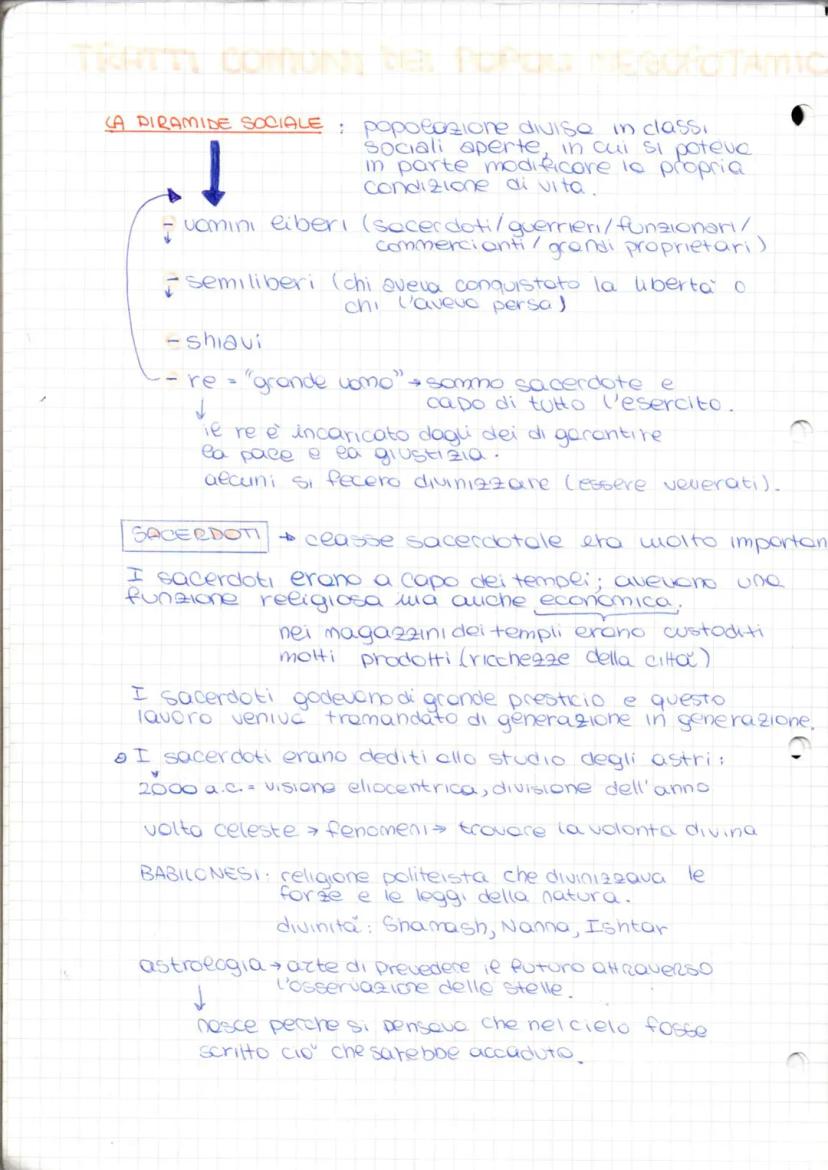 TRATTI COMUNI DEI POPOLI MESOPOTAMIC
LA PIRAMIDE SOCIALE : popolazione divisa in classi
sociali aperte, in cui si poteva
in parte modificare la propria
condizione di vita.
- uomini liberi (sacerdoti/guerrieri/funzionari/
commercianti/grandi proprietari)
- semiliberi (chi aveva conquistato la libertà o
chi l'aveva persa)
- shiavi
- re = "grande uomo" → sommo sacerdote e
capo di tutto l'esercito.
↓
il re è incaricato dagli dei di garantire
la pace e la giustizia.
alcuni si fecero divinizzare (essere venerati).
SACERDOTI → classe sacerdotale era molto importan
I sacerdoti erano a capo dei templi; avevano una
funzione religiosa ma anche economica.
nei magazzini dei templi erano custoditi
molti prodotti (ricchezze della città)
I sacerdoti godevano di grande presticio e questo
lavoro veniva tramandato di generazione in generazione.
I sacerdoti erano dediti allo studio degli astri:
2000 a.c. = visione eliocentrica, divisione dell'anno
volta celeste → fenomeni → trovare la volontà divina
BABILONESI: religione politeista che divinizzava le
forze e le leggi della natura.
divinità: Shamash, Nanna, Ishtar
astrologia → arte di prevedere il futuro attraverso
l'osservazione delle stelle.
↓
nasce perche si pensava che nel cielo fosse
scritto ciò che sarebbe accaduto.